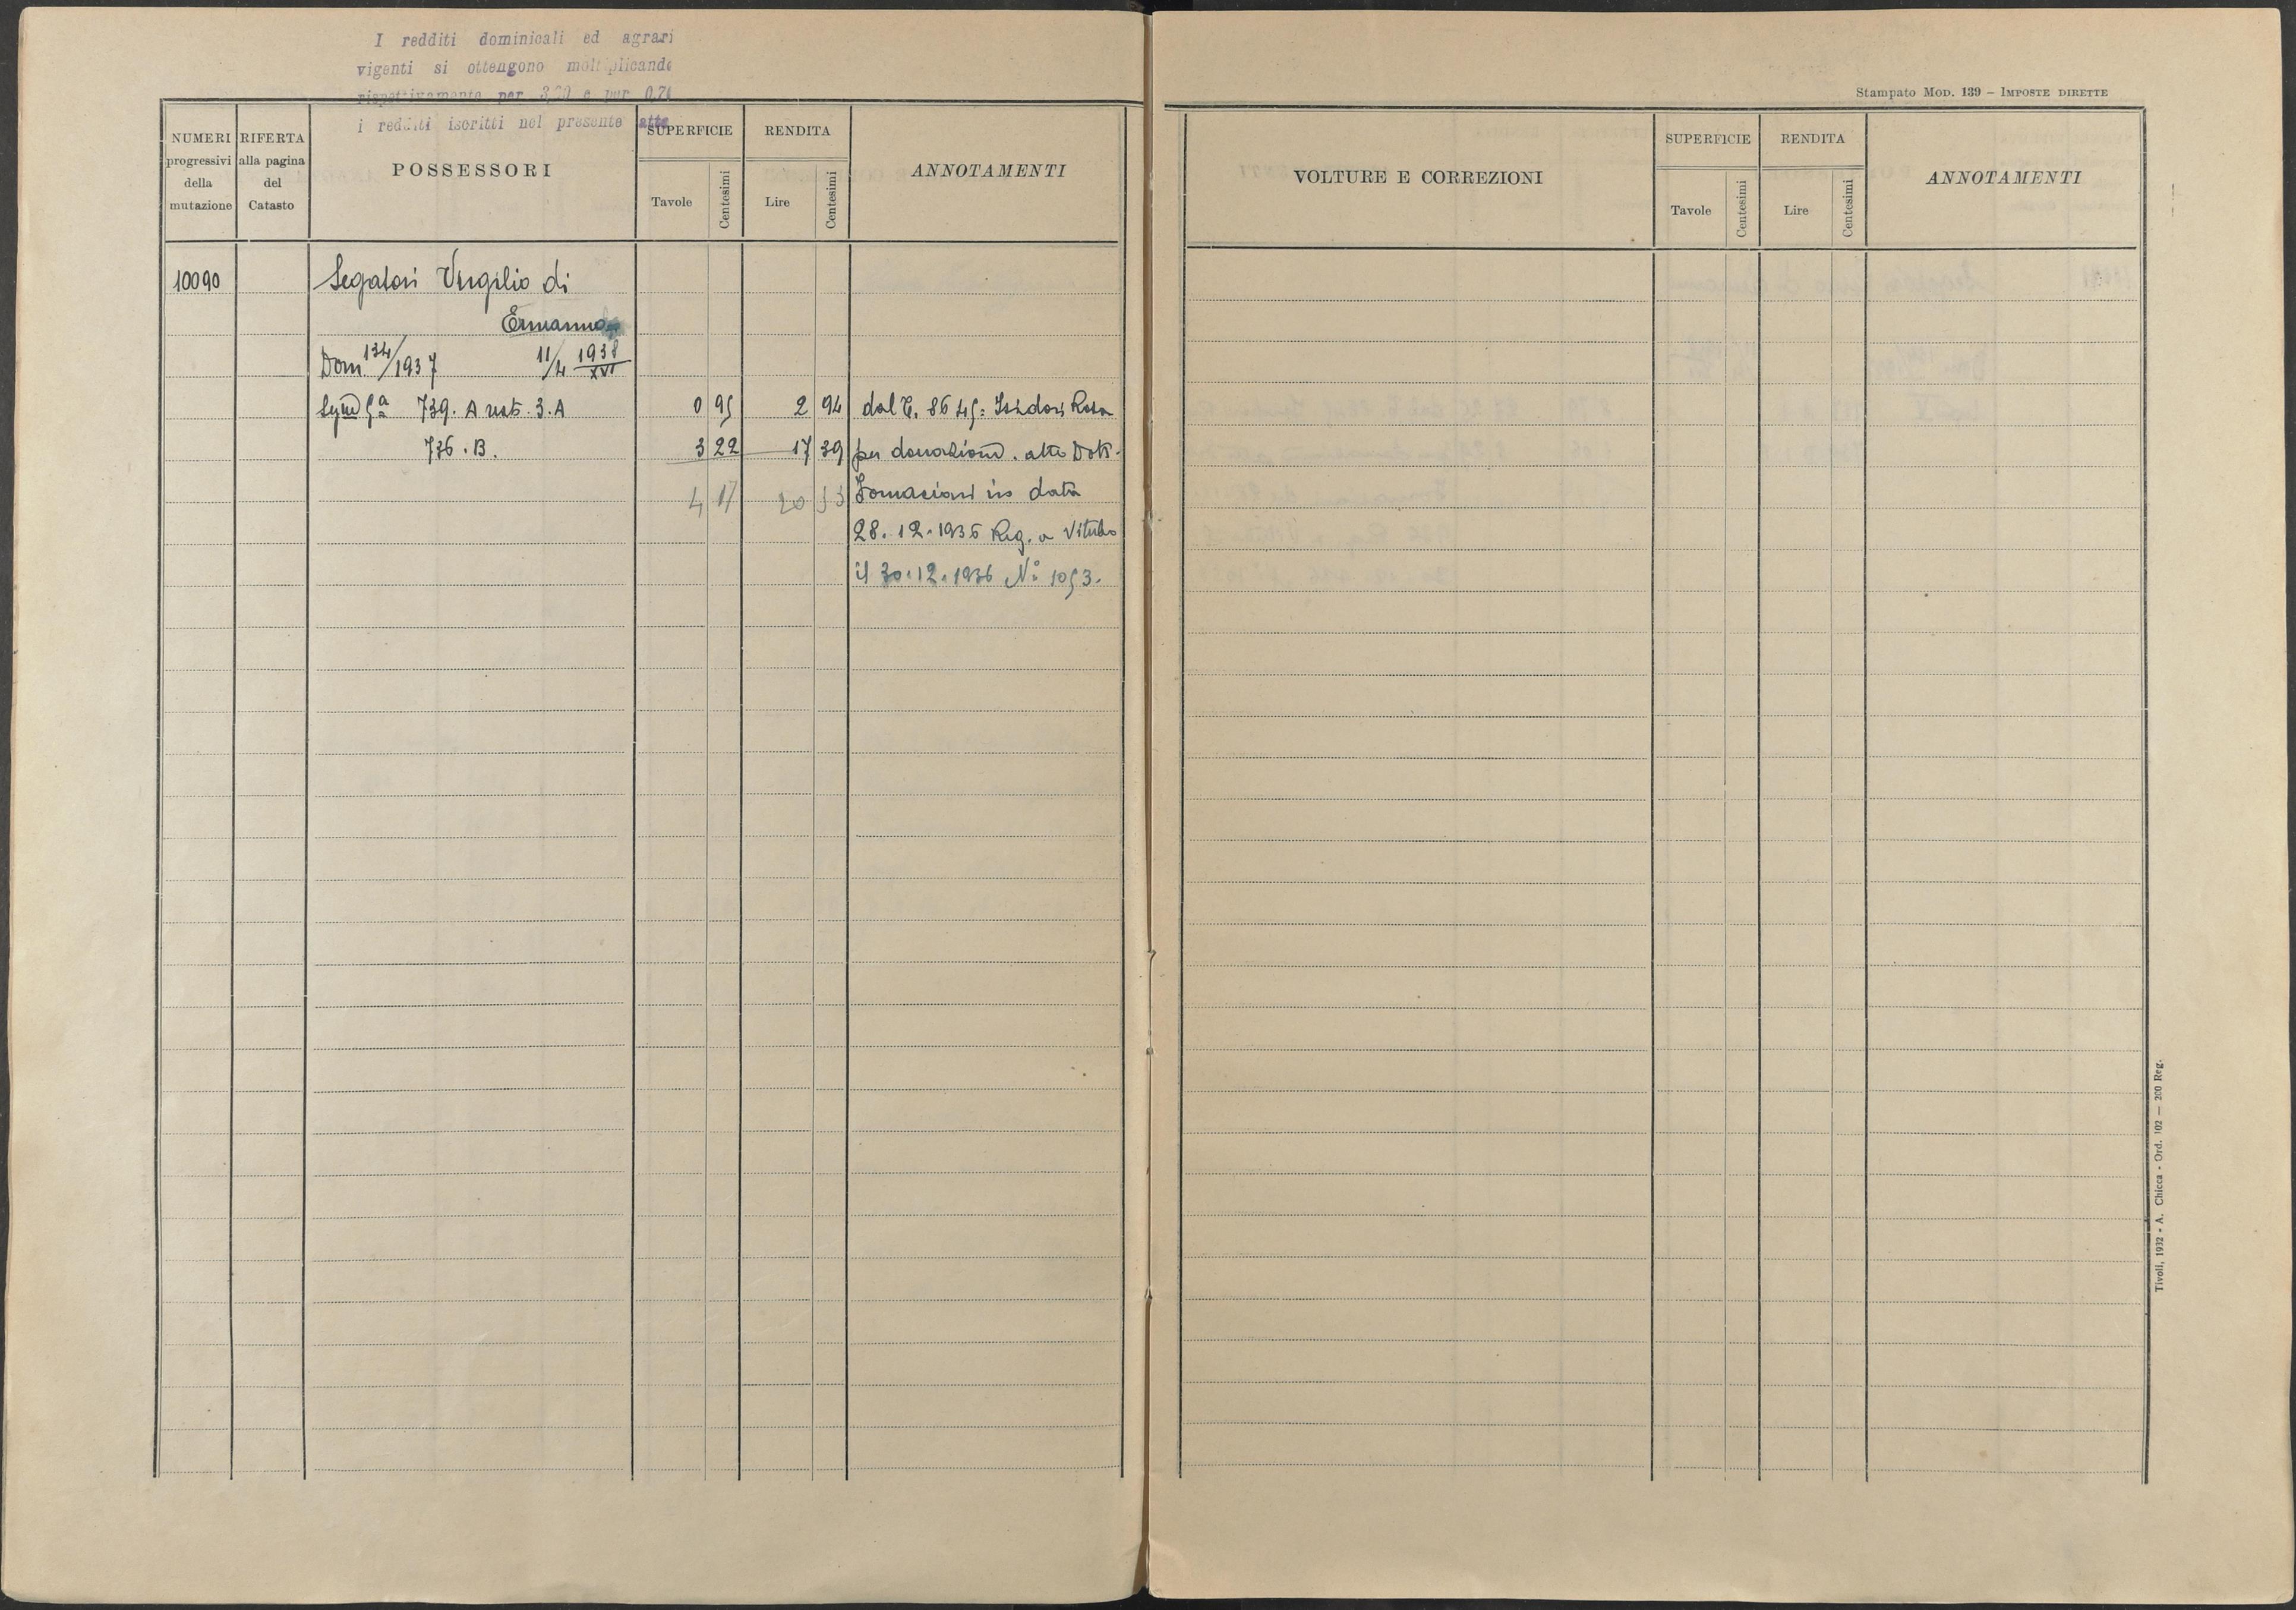 I redditi dominicali ed agrari
vigenti si ottengono moltiplicando
rispettivamente per 3,20 e per 0,70
i redditi iscritti nel presente atto
NUMERI
progressivi
della
mutazione
RIFERTA
alla pagina
del
Catasto
POSSESSORI
SUPERFICIE
Tavole
Centesimi
RENDITA
Lire
Centesimi
ANNOTAMENTI
10090
Segatori Virgilio di
Ermanno
Dom. 134/1937 11/4 1938 XVI
Sez. 5ª 739. A rest. 3. A 0 95 2 94 dal C. 8645: Isidori Rosa
736. B. 3 22 17 39 per donazione. atto Dott.
4 17 20 33 Tomacioni in data
28. 12. 1936 Reg. a Viterbo
il 30. 12. 1936 Nº 1053.
Stampato Mod. 139 – Imposte dirette
VOLTURE E CORREZIONI
SUPERFICIE
Tavole
Centesimi
RENDITA
Lire
Centesimi
ANNOTAMENTI
Tivoli, 1932 - A. Chicca - Ord. 102 — 200 Reg.